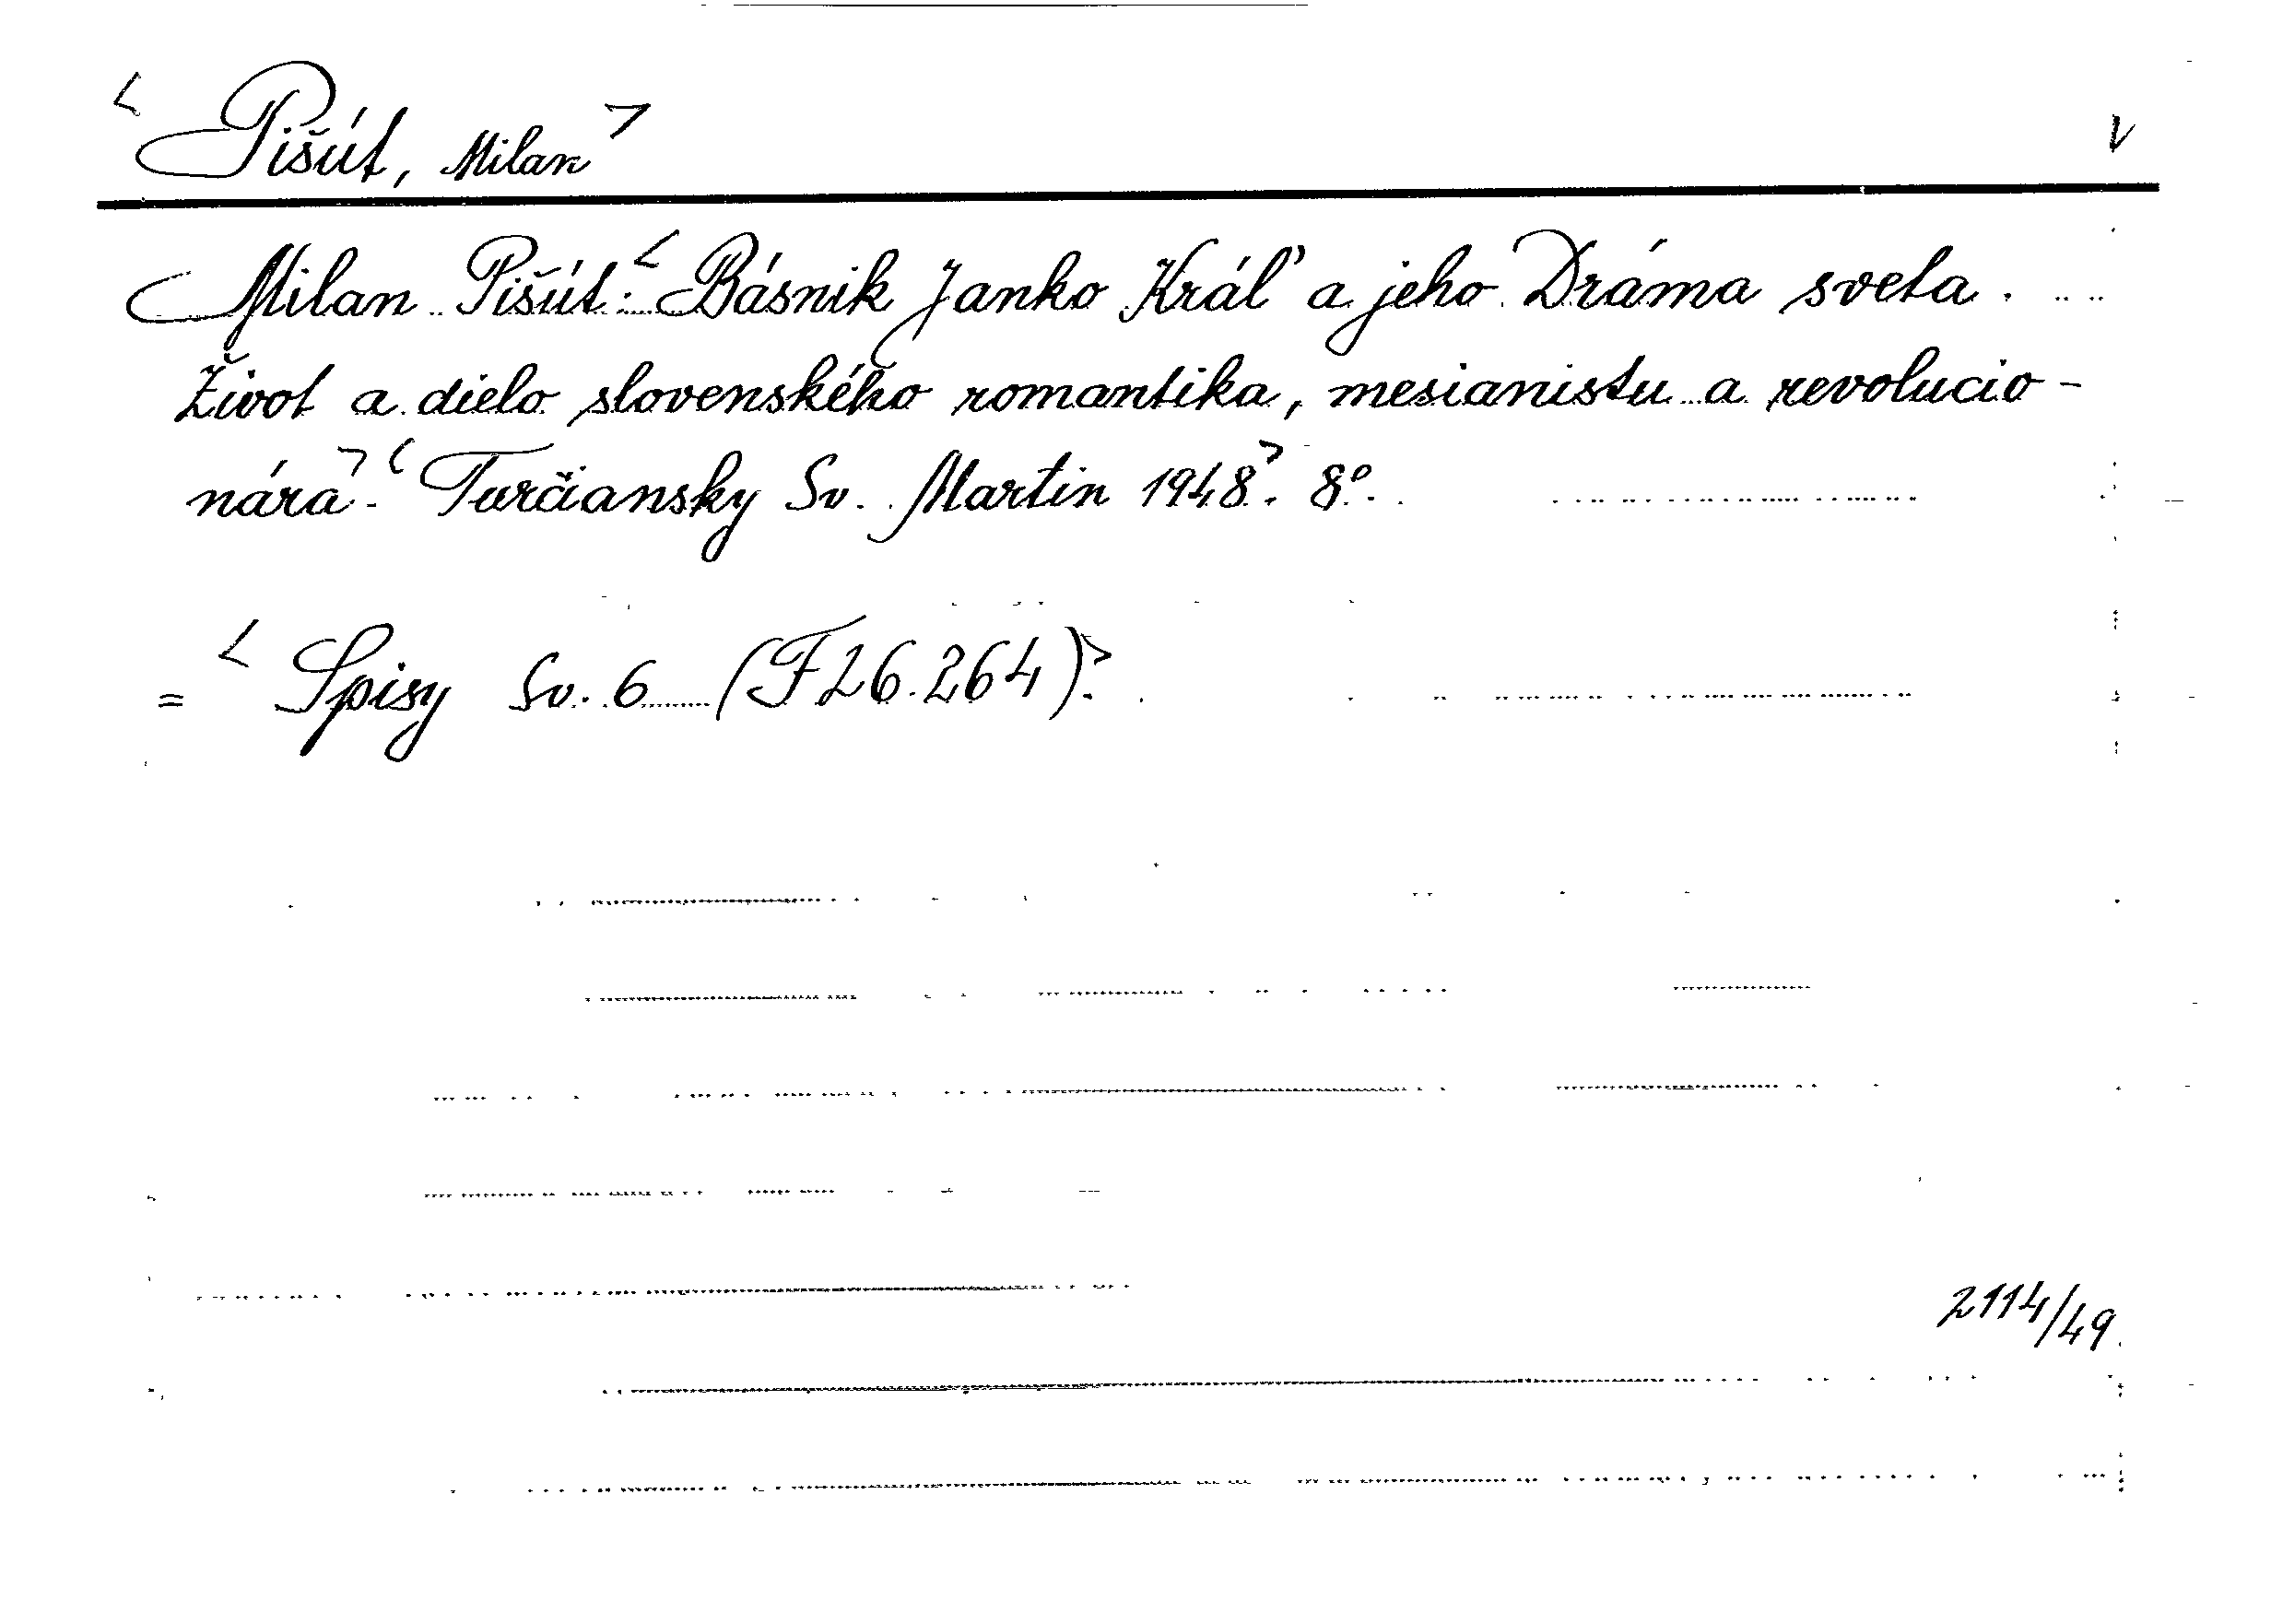 <Pišút, Milan> V
Milan Pišút: <Básnik Janko Kráľ a jeho Dráma sveta.
Život a dielo slovenského romantika, mesianistu a revolucio-
nára>. <Turčiansky Sv. Martin 1948>. 8°.
= <Spisy Sv. 6 (F26.264)>.
2114/49.